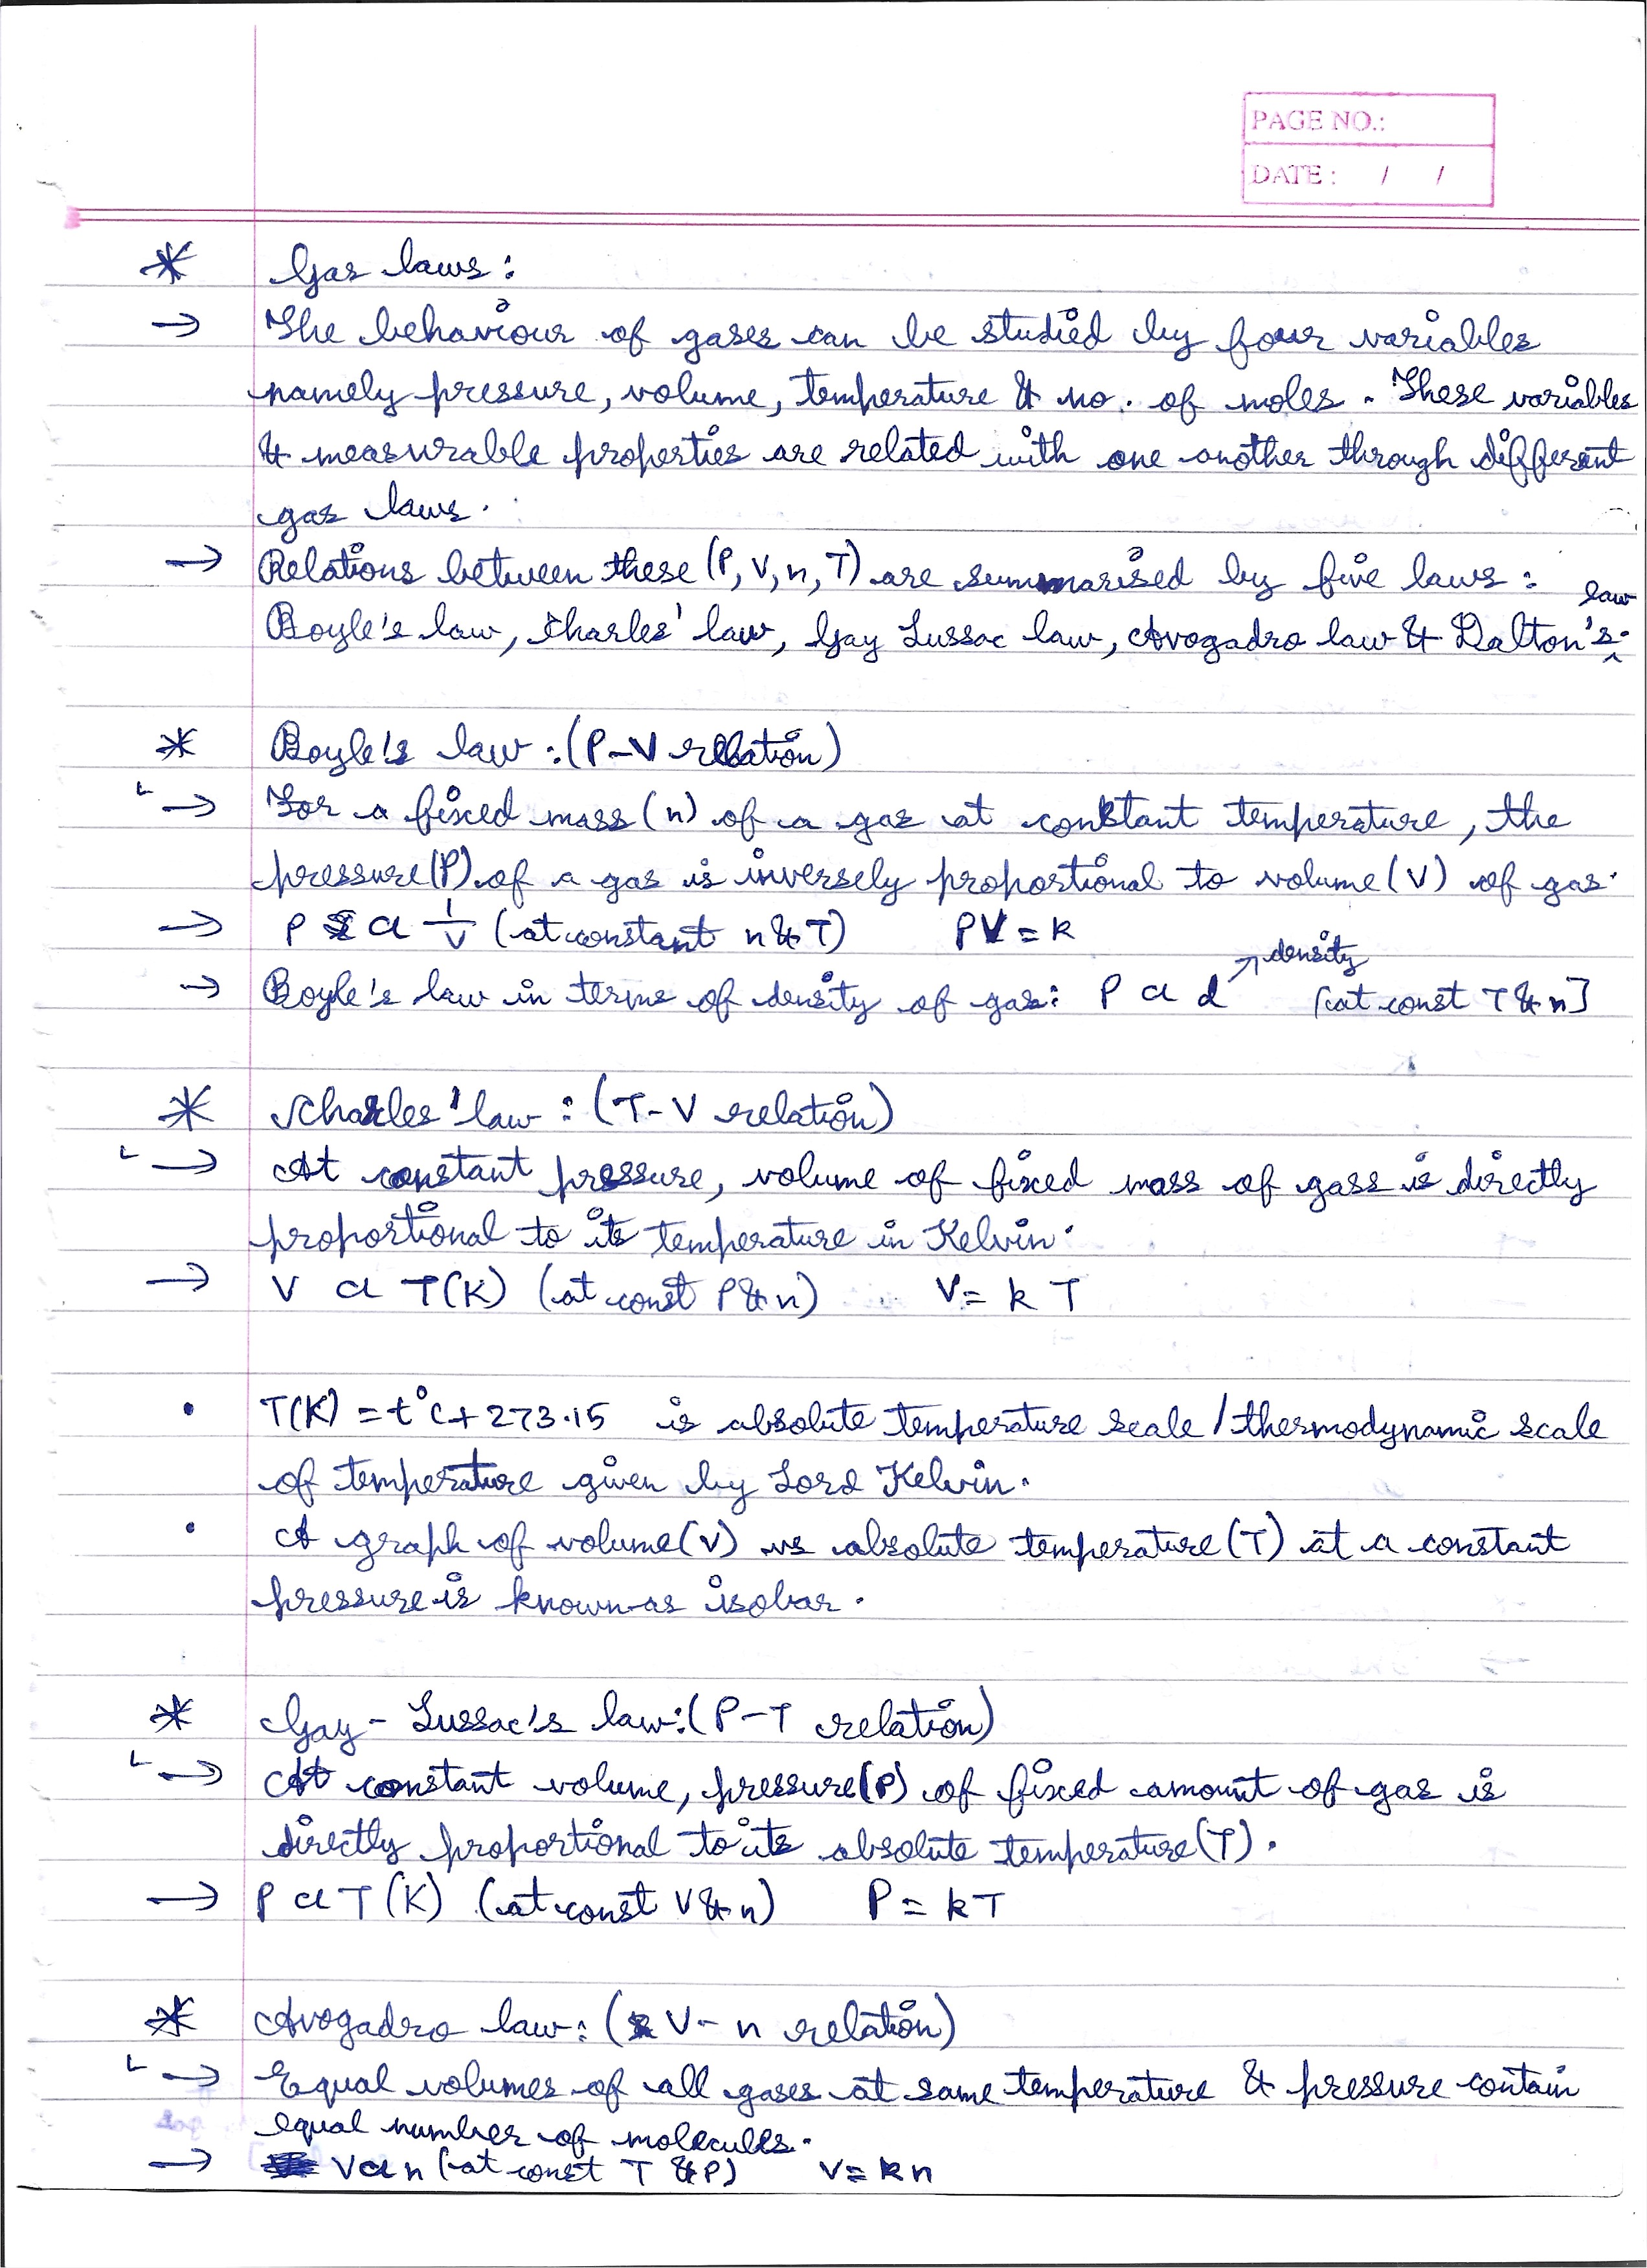 PAGE NO.:
DATE : / /
* Gas laws :
→ The behaviour of gases can be studied by four variables
namely pressure, volume, temperature & no. of moles. These variables
& measurable properties are related with one another through different
gas laws.
→ Relations between these (P, V, n, T) are summarised by five laws :
Boyle's law, Charles' law, Gay Lussac law, Avogadro law & Dalton's law.
* Boyle's law : (P-V relation)
→ For a fixed mass (n) of a gas at constant temperature, the
pressure (P) of a gas is inversely proportional to volume (V) of gas.
→ P α 1/V (at constant n & T) PV = k
→ Boyle's law in terms of density of gas: P α d ↗ density [at const T & n]
* Charles' law : (T-V relation)
→ At constant pressure, volume of fixed mass of gass is directly
proportional to its temperature in Kelvin.
→ V α T(K) (at const P & n) V = k T
• T(K) = t°C + 273.15 is absolute temperature scale / thermodynamic scale
of temperature given by Lord Kelvin.
• A graph of volume (V) vs absolute temperature (T) at a constant
pressure is known as isobar.
* Gay-Lussac's law: (P-T relation)
→ At constant volume, pressure (P) of fixed amount of gas is
directly proportional to its absolute temperature (T).
→ P α T (K) (at const V & n) P = kT
* Avogadro law: (V-n relation)
→ Equal volumes of all gases at same temperature & pressure contain
equal number of molecules.
→ V α n (at const T & P) V = kn